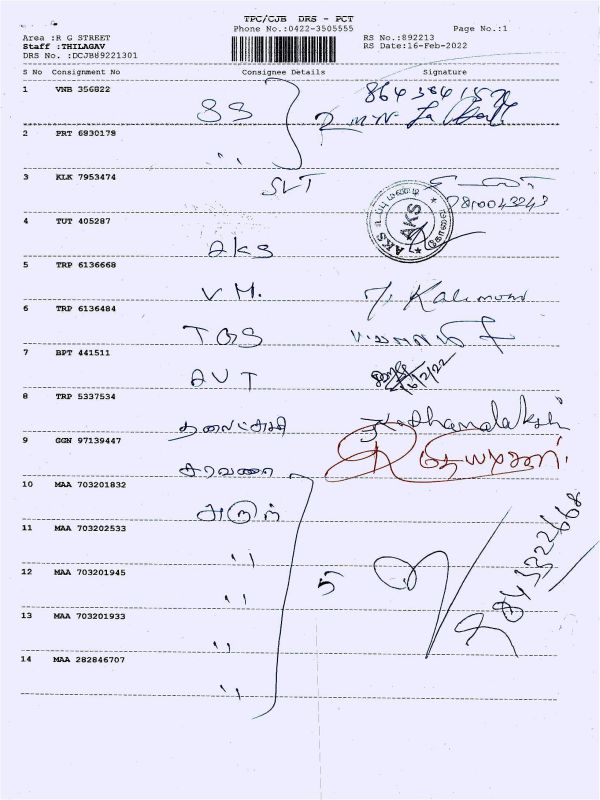 TPC/CJB DRS - PCT
Phone No.:0422-3505555 Page No.:1
Area :R G STREET RS No:892213
Staff :THILAGAV RS Date:16-Feb-2022
DRS No. :DCJB89221301
S No Consignment No Consignee Details Signature
1 VNB 356822
SS
2 PRT 6830178
,,
3 KLK 7953474
SVT
9810043243
AKS
4 TUT 405287
AKS
5 TRP 6136668
V.M.
6 TRP 6136484
TGS
7 BPT 441511
AVT 16/2/22
8 TRP 5337534
Dhanalakshmi
9 GGN 97139447
சரவணா
10 MAA 703201832
அருண்
11 MAA 703202533
,,
12 MAA 703201945
,, 5
13 MAA 703201933
,,
14 MAA 282846707
,,